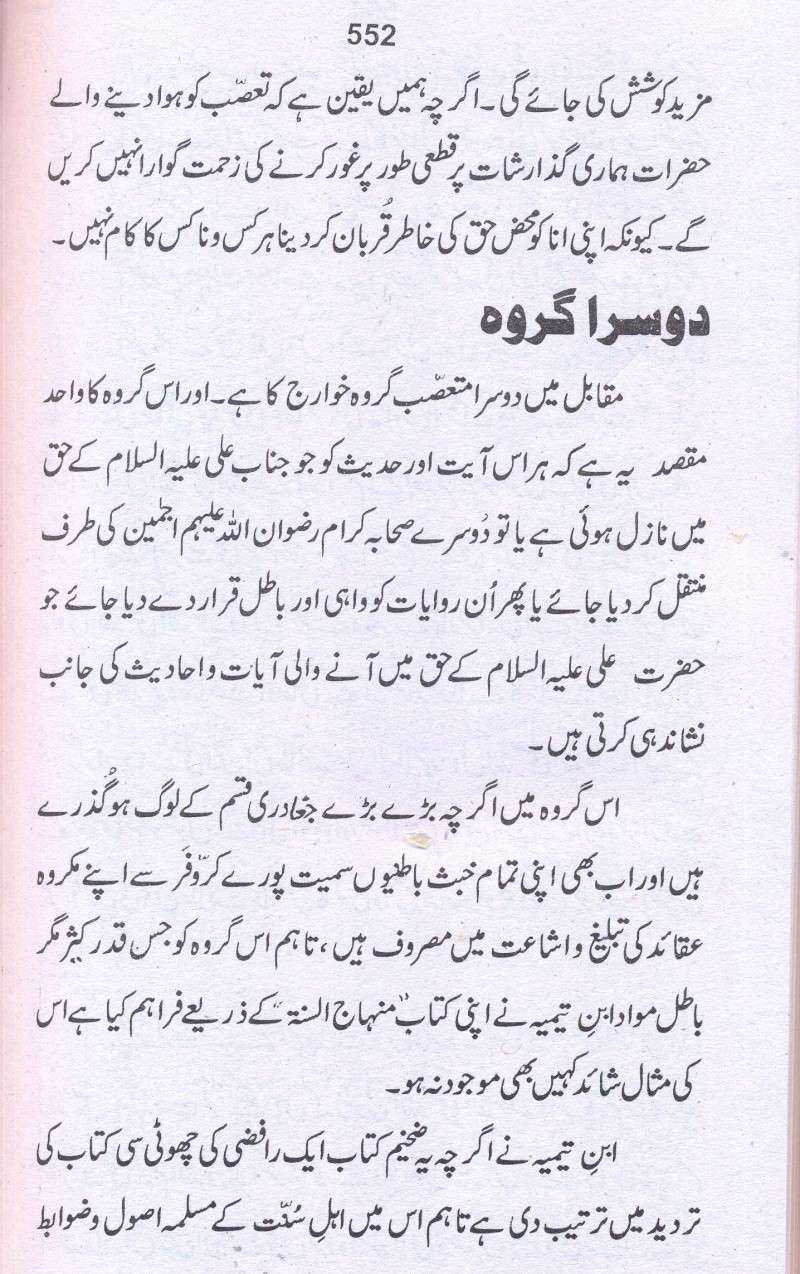 552
مزید کوشش کی جائے گی۔ اگرچہ ہمیں یقین ہے کہ تعصّب کو ہوا دینے والے
حضرات ہماری گذارشات پر قطعی طور پر غور کرنے کی زحمت گوارا نہیں کریں
گے۔ کیونکہ اپنی انا کو محض حق کی خاطر قُربان کر دینا ہر کس و ناکس کا کام نہیں۔
دوسرا گروہ
مقابل میں دوسرا متعصّب گروہ خوارج کا ہے۔ اور اس گروہ کا واحد
مقصد یہ ہے کہ ہر اس آیت اور حدیث کو جو جناب علی علیہ السلام کے حق
میں نازل ہوئی ہے یا تو دُوسرے صحابہ کرام رضوان اللہ علیہم اجمین کی طرف
منتقل کر دیا جائے یا پھر اُن روایات کو واہی اور باطل قرار دے دیا جائے جو
حضرت علی علیہ السلام کے حق میں آنے والی آیات و احادیث کی جانب
نشاندہی کرتی ہیں۔
اس گروہ میں اگرچہ بڑے بڑے جغادری قسم کے لوگ ہو گُذرے
ہیں اور اب بھی اپنی تمام خبث باطنیوں سمیت پورے کرّوفَر سے اپنے مکروہ
عقائد کی تبلیغ و اشاعت میں مصروف ہیں، تاہم اس گروہ کو جس قدر کثیر مگر
باطل مواد ابنِ تیمیہ نے اپنی کتاب ”منہاج السنۃ“ کے ذریعے فراہم کیا ہے اس
کی مثال شائد کہیں بھی موجود نہ ہو۔
ابنِ تیمیہ نے اگرچہ یہ ضخیم کتاب ایک رافضی کی چھوٹی سی کتاب کی
تردید میں ترتیب دی ہے تاہم اس میں اہلِ سُنّت کے مسلمہ اصول و ضوابط